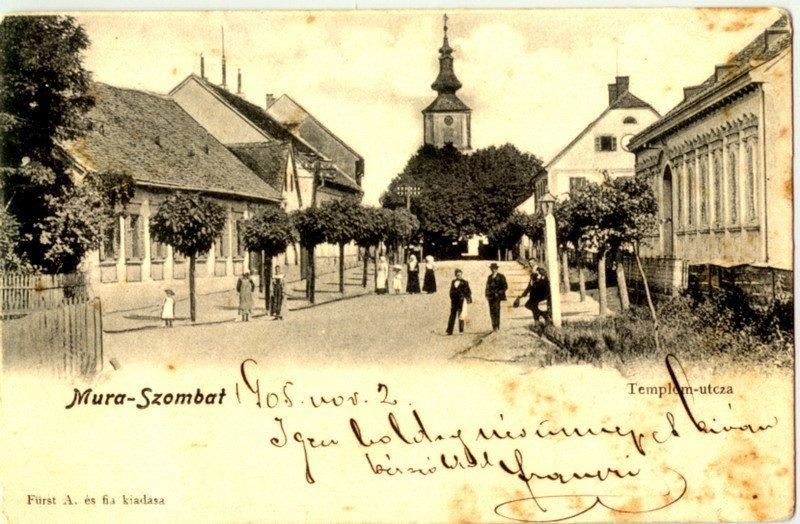 Mura-Szombat 1905. nov. 2.
Templom-utcza
Igen boldog névünnepet kíván
Fürst A. és fia kiadása